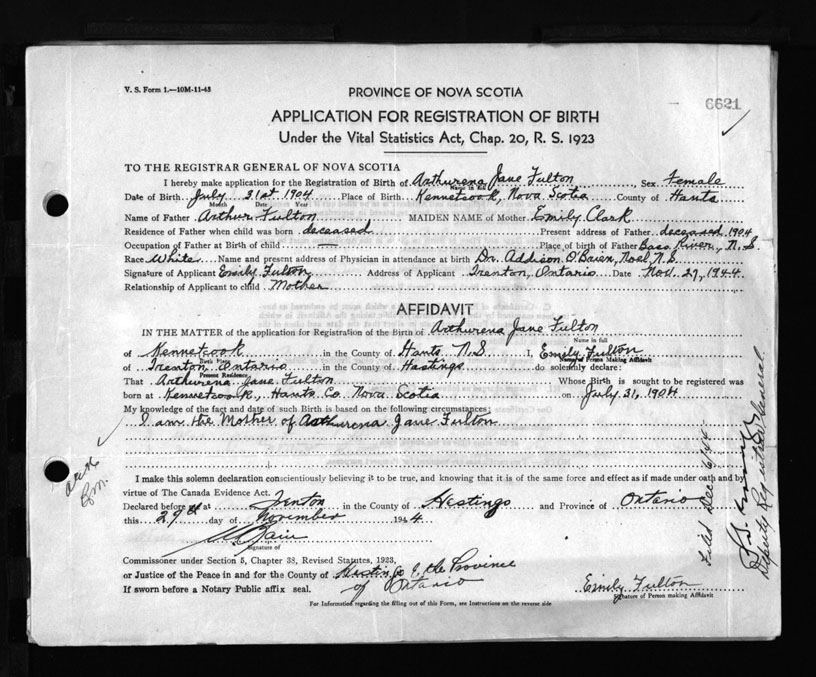 V. S. Form 1.—10M-11-43
PROVINCE OF NOVA SCOTIA
6621
APPLICATION FOR REGISTRATION OF BIRTH
Under the Vital Statistics Act, Chap. 20, R. S. 1923
TO THE REGISTRAR GENERAL OF NOVA SCOTIA
I hereby make application for the Registration of Birth of Arthurena Jane Fulton Sex Female
Name in full
Date of Birth July 31st 1904 Place of Birth Kennetcook, Nova Scotia County of Hants
Month Date Year
Name of Father Arthur Fulton MAIDEN NAME of Mother Emily Clark
Residence of Father when child was born deceased Present address of Father deceased 1904
Occupation of Father at Birth of child — Place of birth of Father Bass River, N.S.
Race White Name and present address of Physician in attendance at birth Dr. Addison O'Brien, Noel, N.S.
Signature of Applicant Emily Fulton Address of Applicant Trenton, Ontario Date Nov. 27, 1944
Relationship of Applicant to child Mother
AFFIDAVIT
IN THE MATTER of the application for Registration of the Birth of Arthurena Jane Fulton
Name in full
of Kennetcook in the County of Hants N.S. I, Emily Fulton
Birth Place Name of Person Making Affidavit
of Trenton Ontario in the County of Hastings do solemnly declare:
Present Residence
That Arthurena Jane Fulton Whose Birth is sought to be registered was
born at Kennetcook, Hants Co. Nova Scotia on July 31, 1904
My knowledge of the fact and date of such Birth is based on the following circumstances:
I am the Mother of Arthurena Jane Fulton
I make this solemn declaration conscientiously believing it to be true, and knowing that it is of the same force and effect as if made under oath and by
virtue of The Canada Evidence Act.
Declared before at Trenton in the County of Hastings and Province of Ontario
this 29 day of November 1944
Signature of
Commissioner under Section 5, Chapter 38, Revised Statutes, 1923,
or Justice of the Peace in and for the County of the Province
of Ontario
If sworn before a Notary Public affix seal.
Emily Fulton
Signature of Person making Affidavit
For Information regarding the filling out of this Form, see Instructions on the reverse side
Filed Dec 6/44
Deputy Registrar General